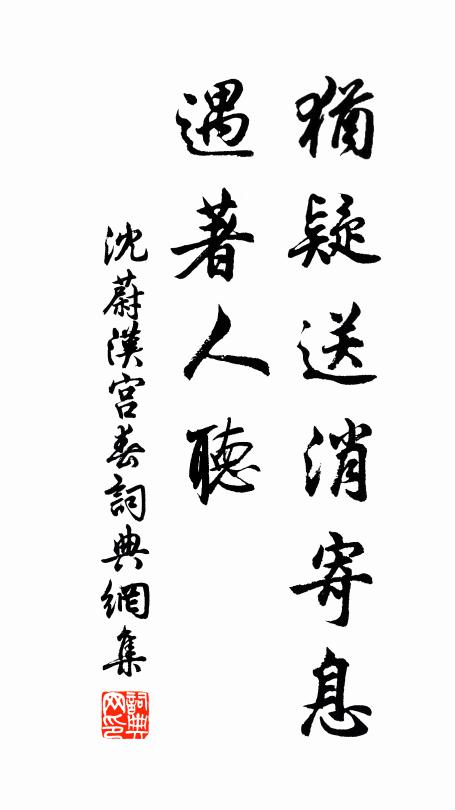 猶疑送消寄息
遇著人聽
沈蔚漢宮春詞典網集
詞典網印